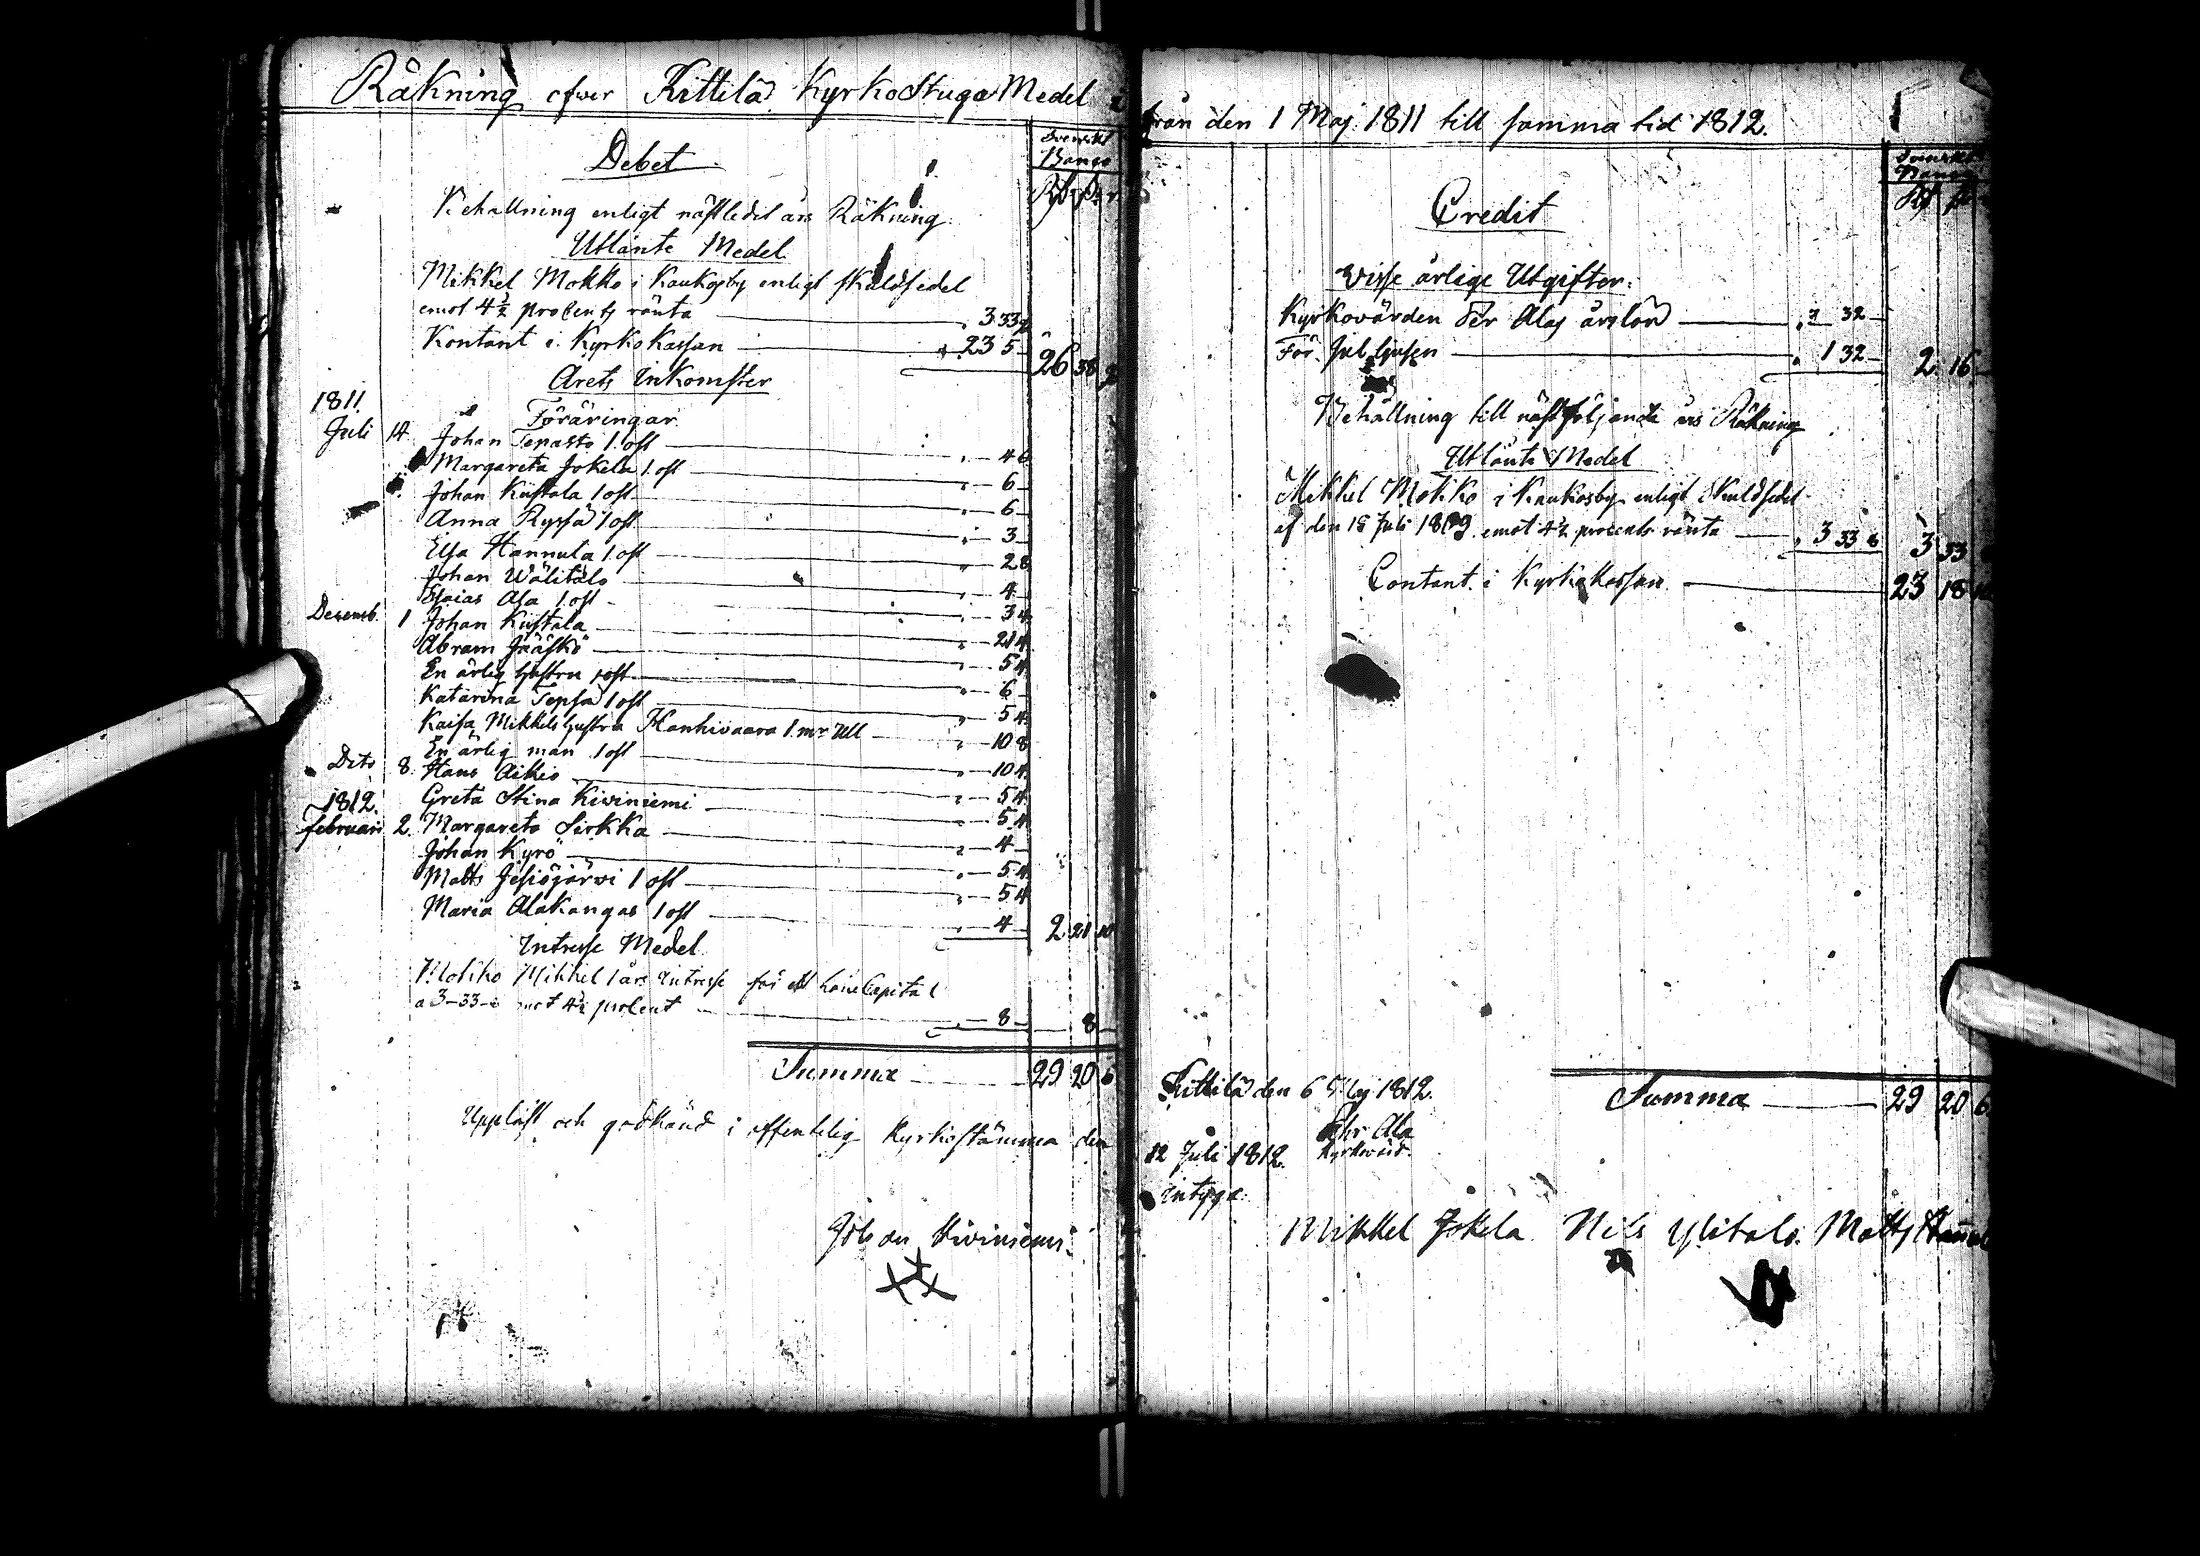 Räkning öfwer Kittilä KyrkoStuga Medel
Svenskt
Banco
Debet
Behallning enligt nästledet års Räkning
Utlänte Medel
Mikkel Mokko i Kaukosby enligt skuldsedel
emot 4½ procents ränta 3 33
Kontant i KyrkoKassan 23 5 26 38
Årets Inkomster
1811. Föräringar
Juli 14. Johan Tepasto 1 ost 4 6
Margareta Jokela 1 ost 6
Johan Kustala 1 ost 6
Anna Ryssä 1 ost 3
Elsa Hannuta 1 ost 2 8
Johan Wälitalo 4
Esaias Asa 1 ost 3 4
Decemb. 1 Johan Kustala 21 4
Abram Jääskö 5 4
En ärlig hustru 1 ost 6
Katarina Tepsa 1 ost 5 4
Kaisa Mikkels hustru Hanhivaara 1 mr Ull 10 8
En ärlig man 1 ost 10 4
Dito 8. Hans Aikio 5 4
1812. Greta Stina Kiviniemi 5 4
februari 2. Margareta Sirkka 4
Johan Kyrö 5 4
Matts Jesiöjärwi 1 ost 5 4
Maria Alakangas 1 ost 4 2 21 10
Intresse Medel
Mokko Mikkel 1 års Intresse för ett låne Capital
a 3-33- mot 4½ procent 8 8
Summa 29 20 6
Uppläst och godkänd i offentelig Kyrkostämma den
Johan Kiviniemi
från den 1 Maj 1811 till samma tid 1812.
Svenskt
Banco
Credit
Visse årlige Utgifter:
Kyrkovärden Per Alas årslön 32
För Julljusen 1 32 2 16
Behållning till nästföljande års Räkning
Utlänte Medel
Mikkel Mokko i Kaukosby enligt Skuldsedel
af den 18 Juli 1809 emot 4½ procents ränta 3 33 6 3 33
Contant i KyrkoKassan 23 18
Summa 29 20 6
Kittilä den 6 Maj 1812.
Pehr Ala
Kyrkovärd.
12 Juli 1812.
Intyga:
Mikkel Jokela Nils Ylitalo. Matts